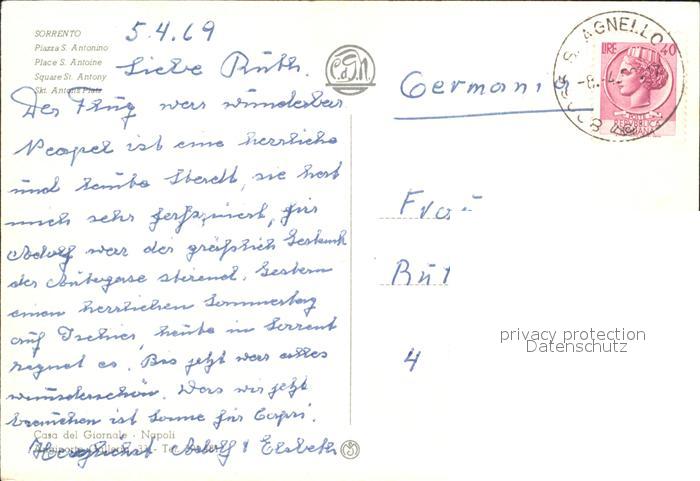 SORRENTO
Piazza S. Antonino
Place S. Antoine
Square St. Antony
Skt. Antons Platz
5.4.69
Liebe Ruth.
Der Flug war wunderbar
Neapel ist eine herrliche
und laute Stadt, sie hat
mich sehr fasziniert, für
Adolf war der gräßlich Gestank
der Autogase störend. Gestern
einen herrlichen Sommertag
auf Ischia, heute in Sorrent
regnet es. Bis jetzt war alles
wunderschön. Was wir jetzt
brauchen ist Sonne für Capri.
Herzlichst Adolf & Elsbeth
Casa del Giornale - Napoli
C.d.G.N.
Germania
S. AGNELLO
LIRE 40
POSTE
REPVBBLICA
ITALIANA
Frau
Rut
4
privacy protection
Datenschutz